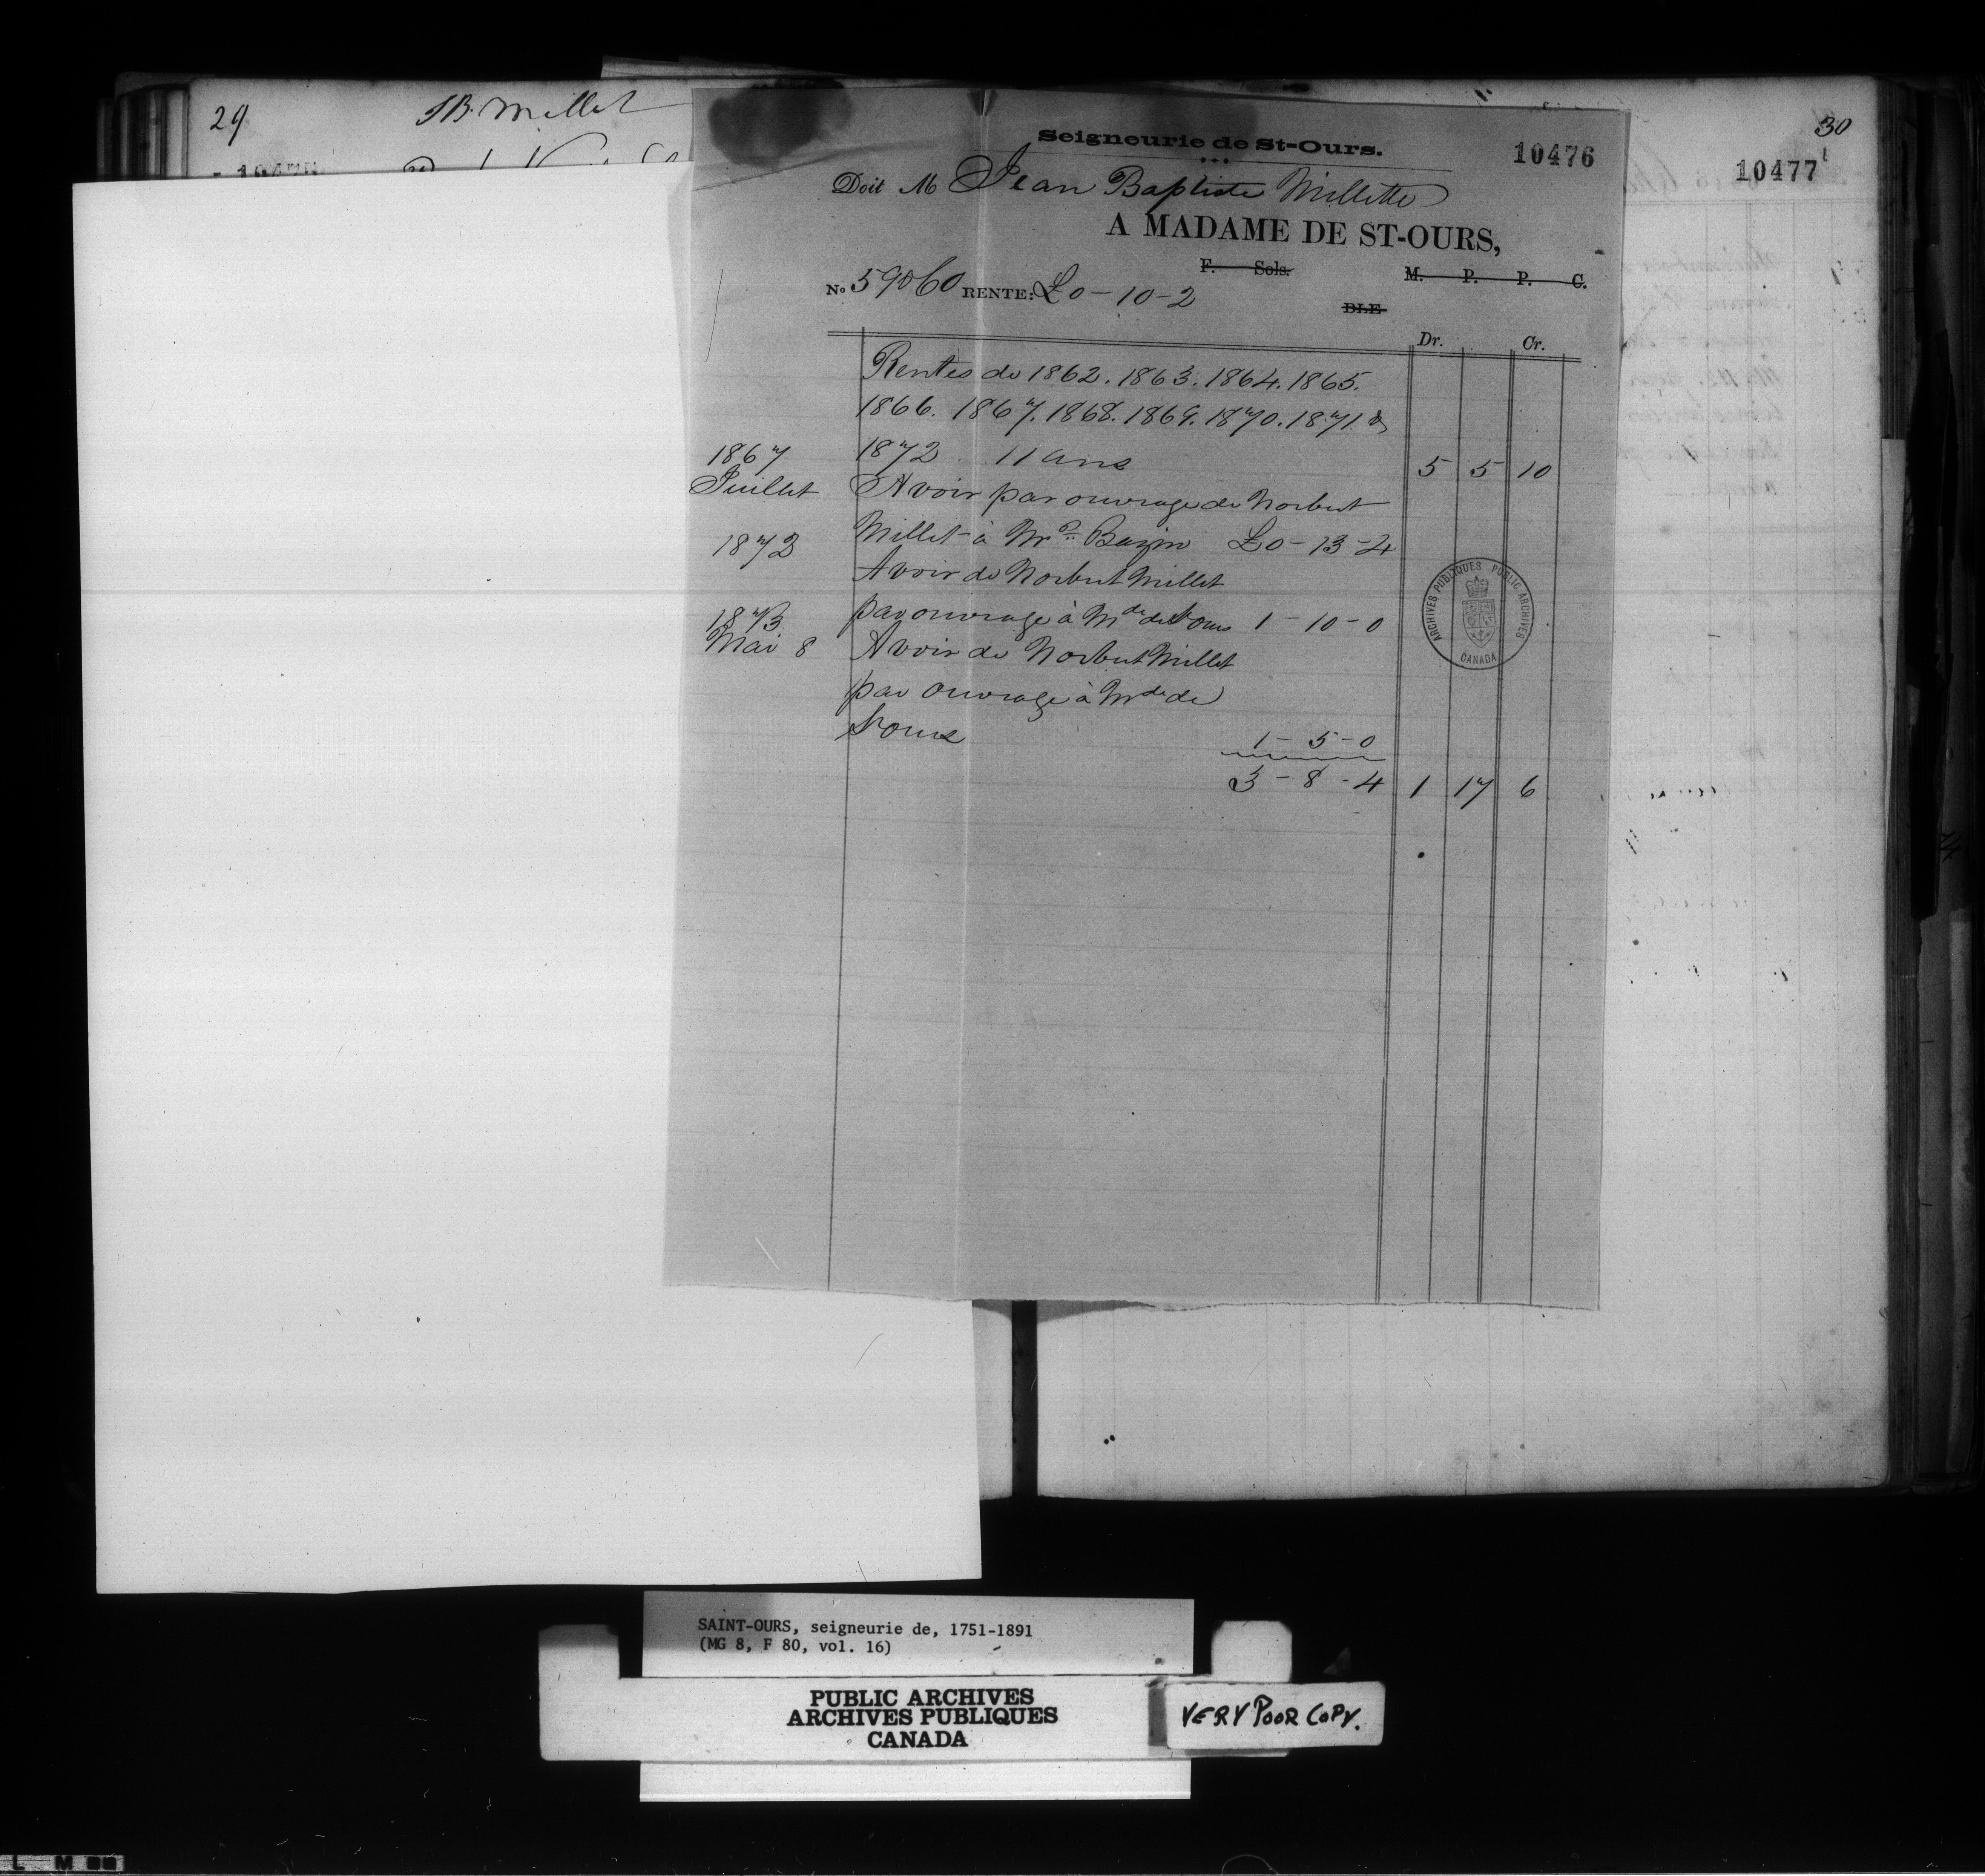 29
JB. Millet
30
10477
Seigneurie de St-Ours.
10476
Doit M Jean Baptiste Millette
A MADAME DE ST-OURS,
F. Sols. M. P. P. C.
No 59 & 60 RENTE: £0-10-2
BLE
Dr. Cr.
Rentes de 1862. 1863. 1864. 1865.
1866. 1867. 1868. 1869. 1870. 1871 &
1872 11 ans 5 5 10
1867
Juillet Avoir par ouvrage de Norbert
Millet à Mr Bazin £0-13-4
1872 Avoir de Norbert Millet
par ouvrage à Mde de St ours 1-10-0
1873
Mai 8 Avoir de Norbert Millet
par ouvrage à Mde de
St ours
1-5-0
3-8-4 1 17 6
ARCHIVES PUBLIQUES PUBLIC ARCHIVES
CANADA
SAINT-OURS, seigneurie de, 1751-1891
(MG 8, F 80, vol. 16)
PUBLIC ARCHIVES
ARCHIVES PUBLIQUES
CANADA
VERY POOR COPY.